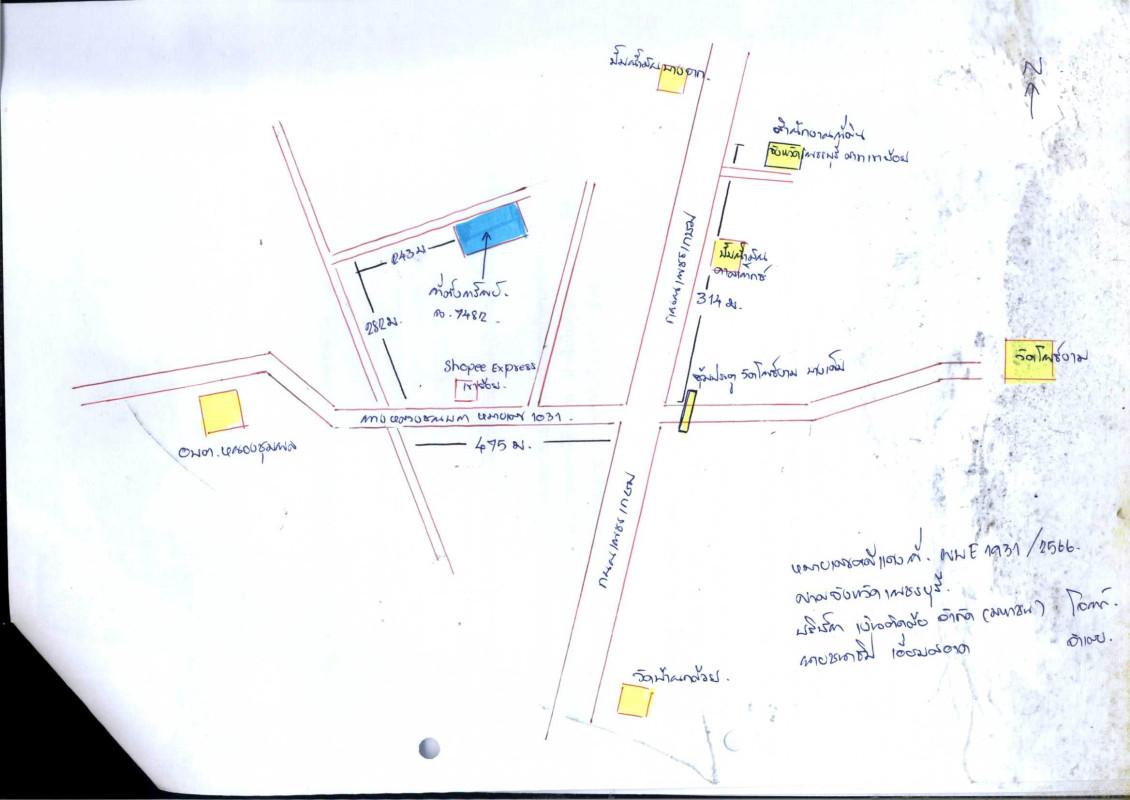 ปั๊มน้ำมันบางจาก.
N
สำนักงานที่ดิน
จังหวัดเพชรบุรี สาขาเขาย้อย
ถนนเพชรเกษม
ปั๊มน้ำมัน
คาลเท็กซ์
314 ม.
243 ม
ที่ตั้งทรัพย์.
ฉ. 7482
282 ม.
Shopee Express
เขาย้อย.
ซุ้มประตู วัดโพธิ์งาม บางเค็ม
วัดโพธิ์งาม
ทางหลวงชนบท หมายเลข 1031.
475 ม.
อบต. หนองชุมพล
ถนนเพชรเกษม
หมายเลขคดีแดงที่. ผบE 1931/2566.
ศาลจังหวัดเพชรบุรี.
บริษัท เงินติดล้อ จำกัด (มหาชน) โจทก์.
นายธนาธิป เอี่ยมสอาด จำเลย.
วัดบ้านกล้วย.